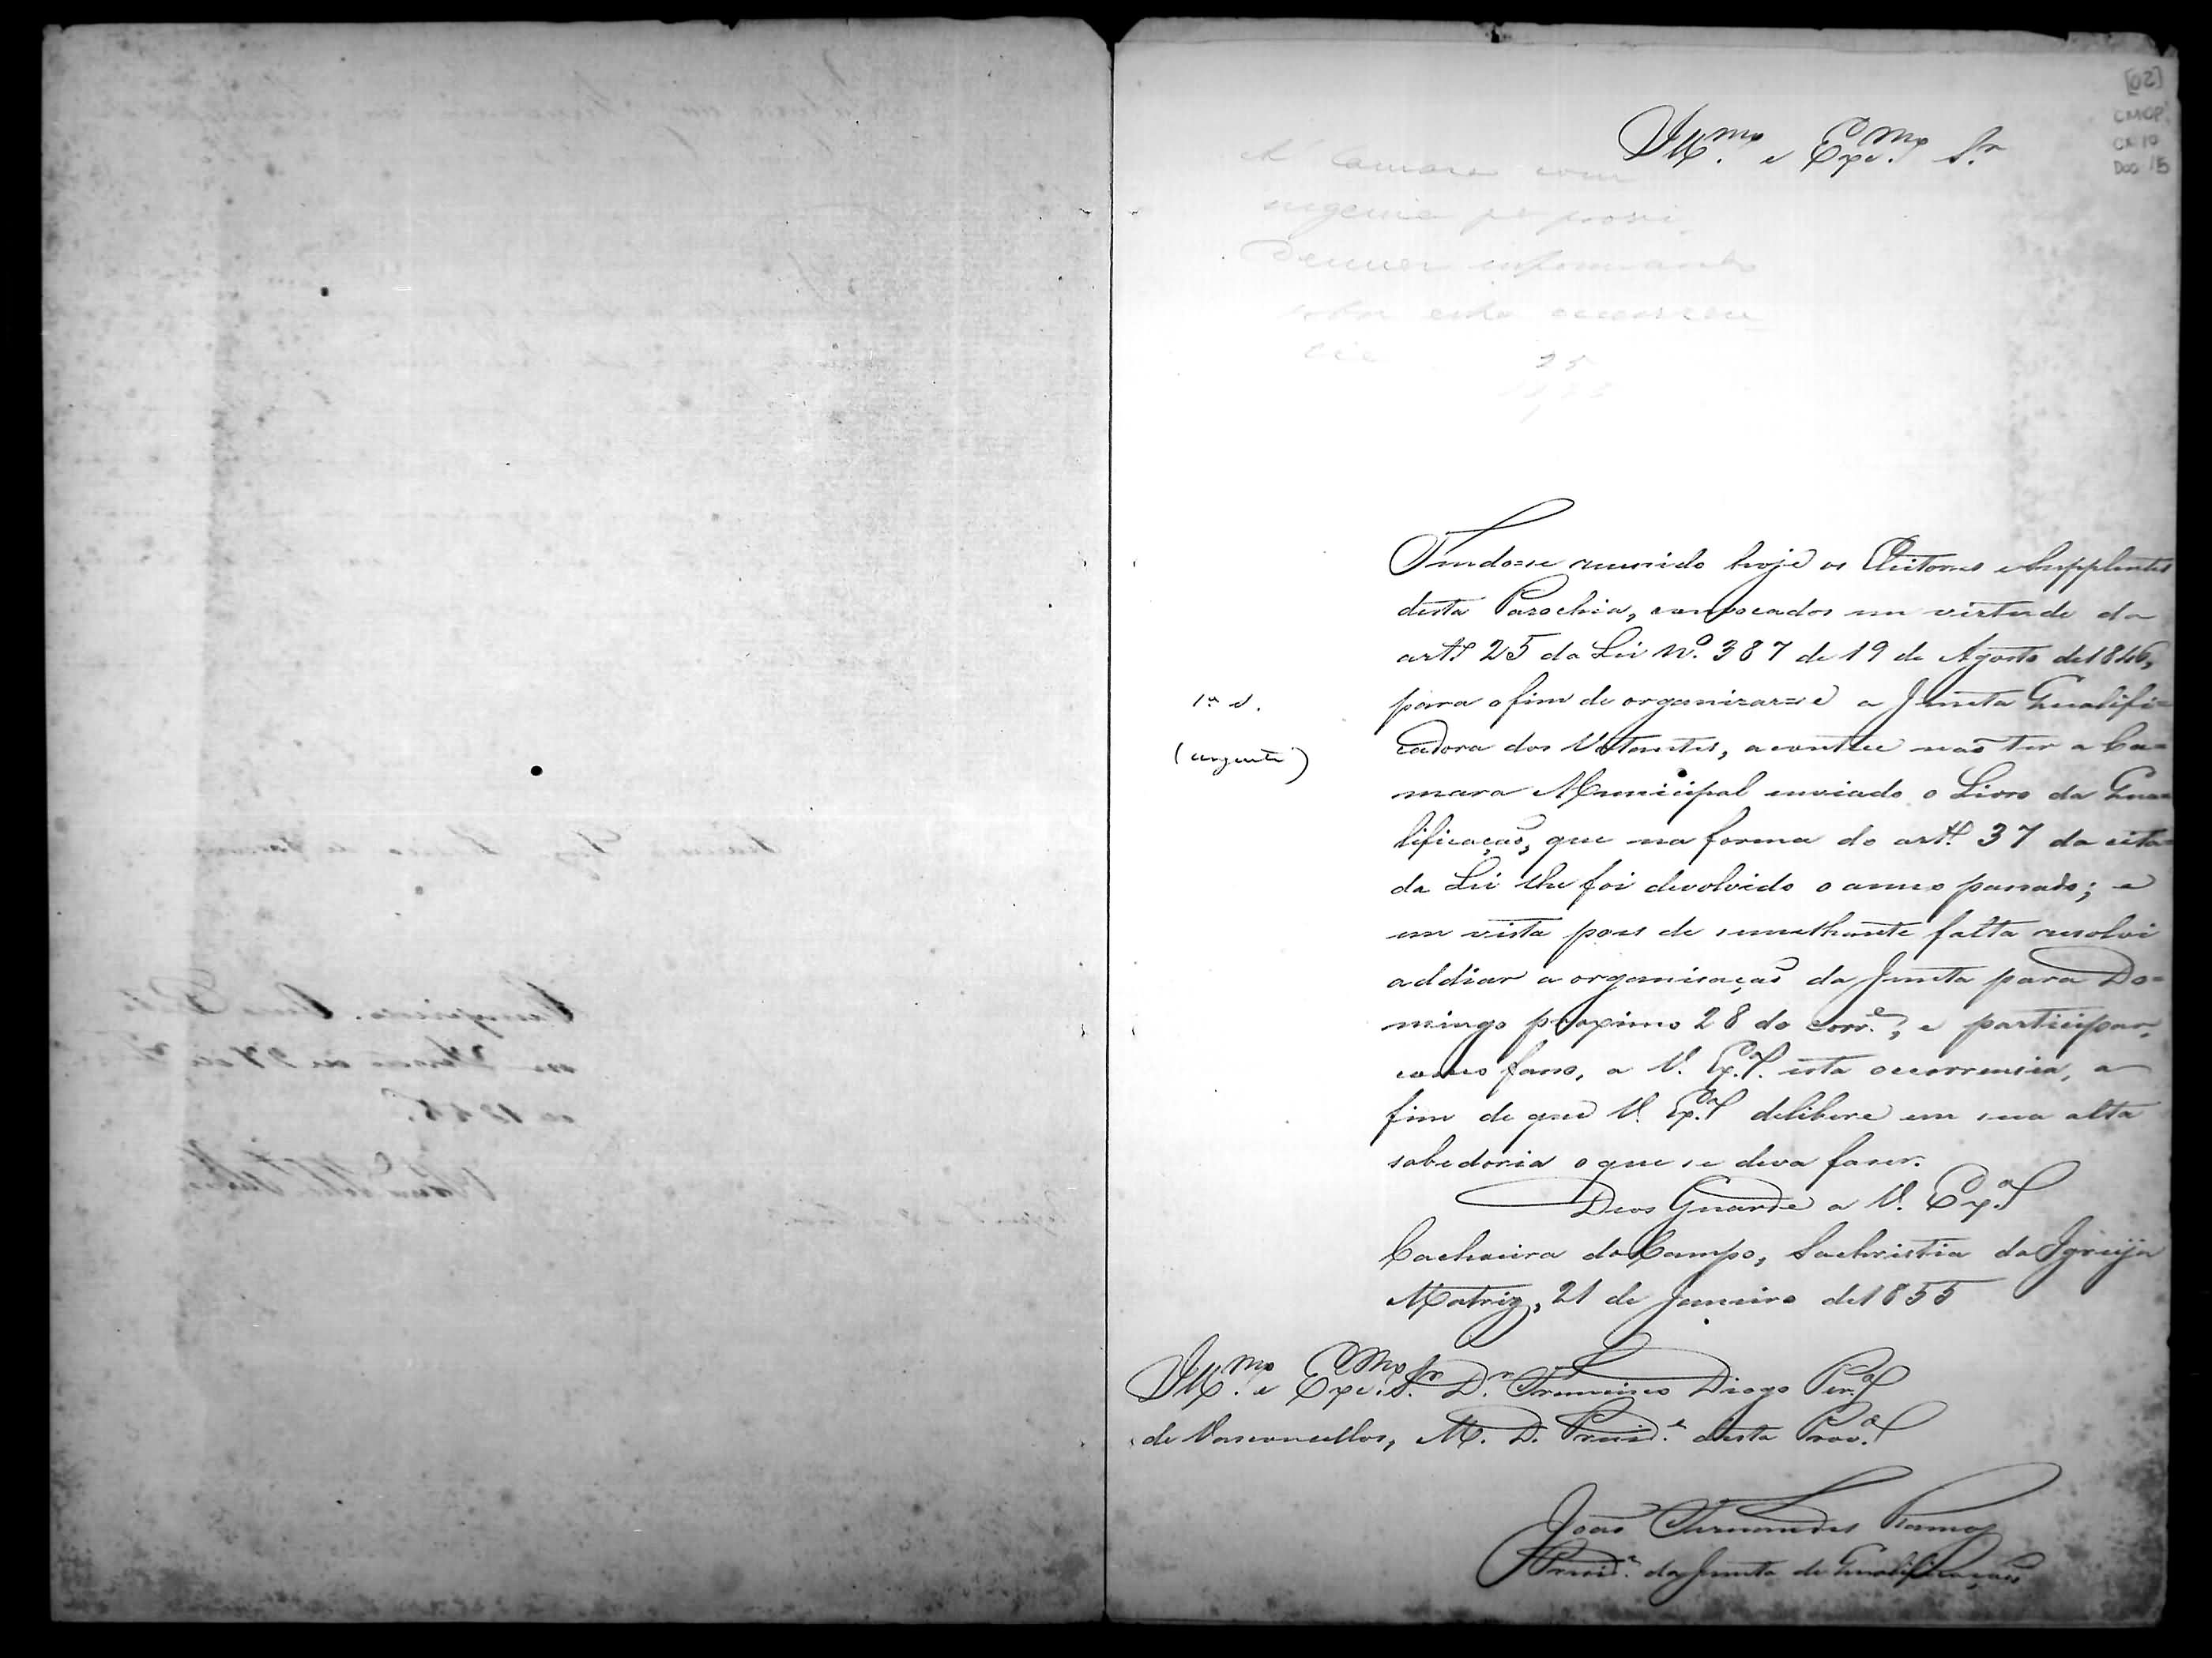 [02]
CMOP
CX 10
Doc 15
Ill.mo e Exc.mo Sr.
A' Camara com
urgencia pa provi
denciar informando
sobre esta occorren=
cia 25
Tendo=se reunido hoje os Eleitores e Supplentes
desta Parochia, convocados em virtude do
art.o 25 da Lei N.o 387 de 19 de Agosto de 1846,
para o fim de organizar=se a Junta Qualifi=
1.a S.
cadora dos Votantes, acontece não ter a Ca=
(urgente)
mara Municipal enviado o Livro da Qua=
lificação, que na forma do art.o 37 da cita=
da Lei lhe foi devolvido o anno passado; e
em vista pois de semelhante falta resolvi
addiar a organisação da Junta para Do=
mingo proximo 28 do corr.e, e participar,
como faço, a V. Ex.a esta occorrencia, a
fim de que V. Ex.a delibere em sua alta
sabedoria o que se deva faser.
Deos Guarde a V. Ex.a
Cachoeira do Campo, Sachristia da Igreja
Matriz, 21 de Janeiro de 1855
Ill.mo e Exc.mo Sr. D.r Francisco Diogo Per.a
de Vasconcellos, M. D. Presid.e desta Prov.a
João Fernandes Ramos
Presid.e da Junta de Qualificação